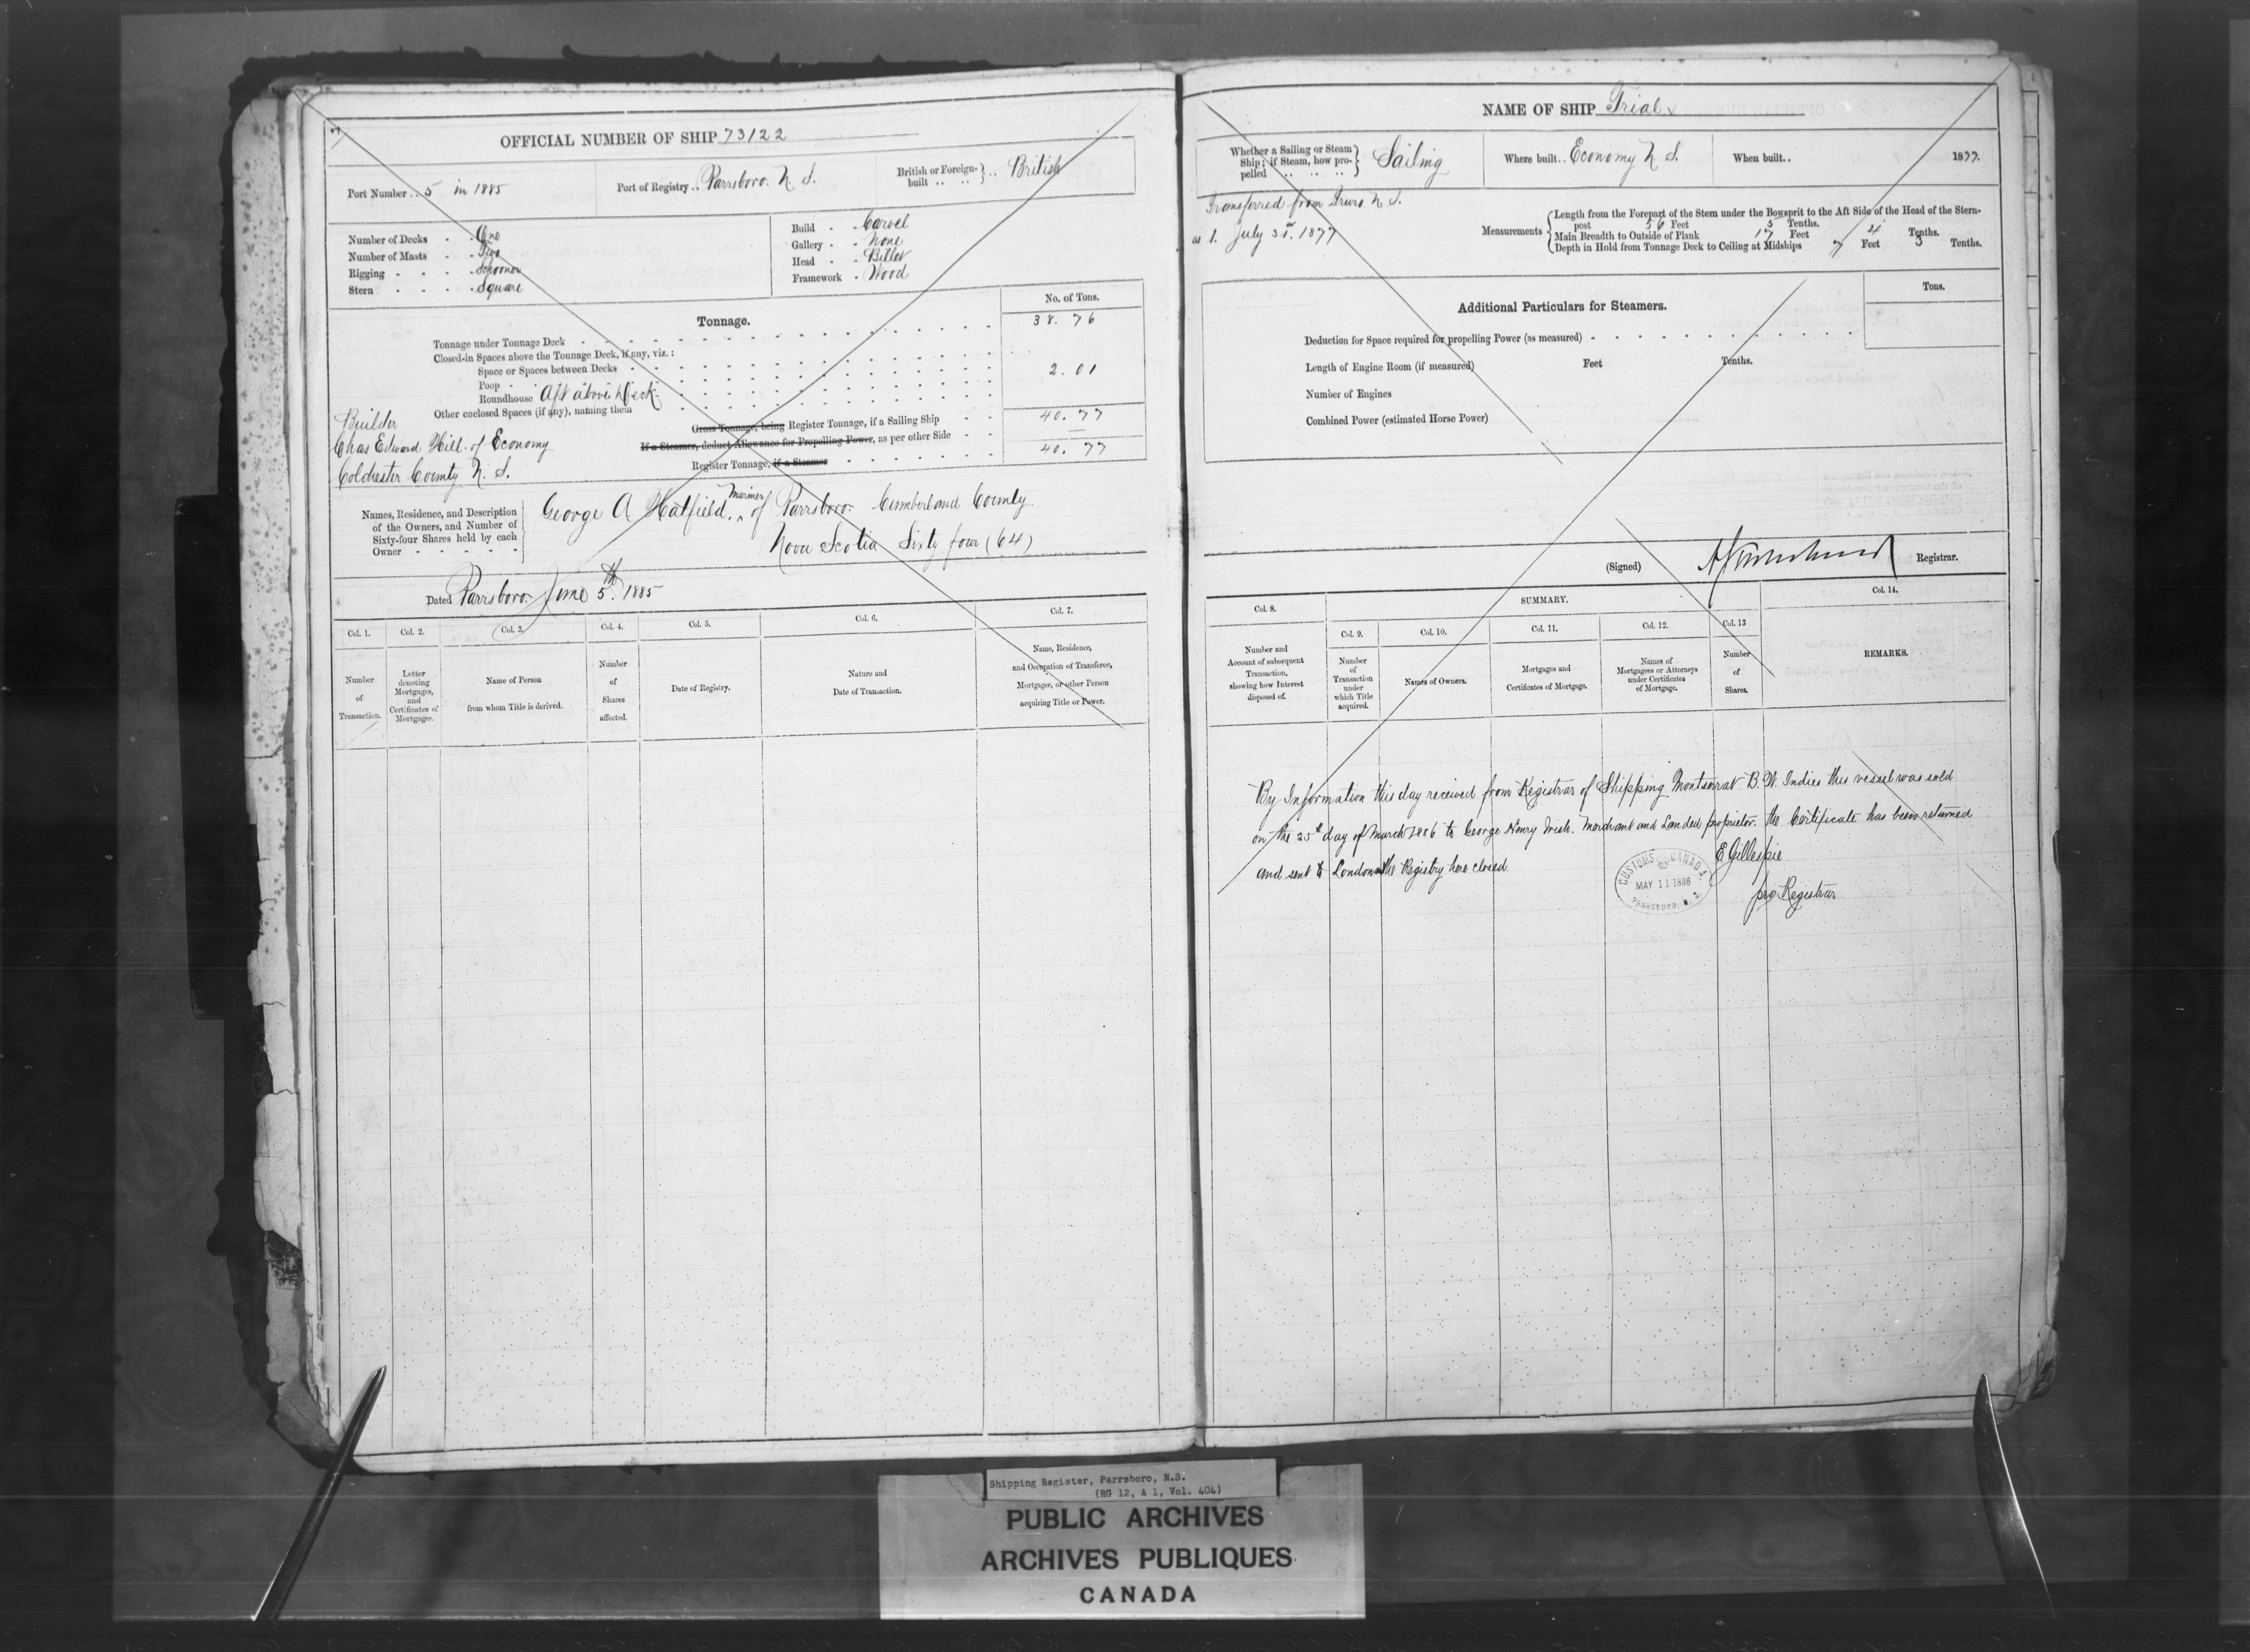 OFFICIAL NUMBER OF SHIP 73122
Port Number .. 5 in 1885
Port of Registry .. Parrsboro. N. S.
British or Foreign-built .. .. } .. British
Number of Decks - - One
Number of Masts - - Two
Rigging - - - - Schooner
Stern - - - - Square
Build - - Carvel
Gallery - - None
Head - - Billet
Framework - Wood
Tonnage.
No. of Tons.
Tonnage under Tonnage Deck
38. 76
Closed-in Spaces above the Tonnage Deck, if any, viz.:
Space or Spaces between Decks
Poop
2. 01
Roundhouse Aft above Deck
Other enclosed Spaces (if any), naming them
Gross Tonnage, being Register Tonnage, if a Sailing Ship
40. 77
If a Steamer, deduct Allowance for Propelling Power, as per other Side
Register Tonnage, if a Steamer
40. 77
Builder
Chas Edward Hill. of Economy
Colchester County N. S.
Names, Residence, and Description
of the Owners, and Number of
Sixty-four Shares held by each
Owner - - - - -
George A Hatfield, mariner of Parrsboro. Cumberland County
Nova Scotia Sixty four (64)
Dated Parrsboro. June 5th. 1885
Col. 1.
Col. 2.
Col. 3.
Col. 4.
Col. 5.
Col. 6.
Col. 7.
Number
of
Transaction.
Letter
denoting
Mortgages,
and
Certificates of
Mortgages.
Name of Person
from whom Title is derived.
Number
of
Shares
affected.
Date of Registry.
Nature and
Date of Transaction.
Name, Residence,
and Occupation of Transferee,
Mortgagee, or other Person
acquiring Title or Power.
NAME OF SHIP Trial
Whether a Sailing or Steam
Ship; if Steam, how pro-
pelled .. .. ..
Sailing
Where built.. Economy N. S.
When built..
1877.
Transferred from Truro N. S.
as 1. July 31st. 1877
Measurements
Length from the Forepart of the Stem under the Bowsprit to the Aft Side of the Head of the Stern-
post 56 Feet 5 Tenths.
Main Breadth to Outside of Plank 17 Feet 4 Tenths.
Depth in Hold from Tonnage Deck to Ceiling at Midships 7 Feet 3 Tenths.
Additional Particulars for Steamers.
Tons.
Deduction for Space required for propelling Power (as measured)
Length of Engine Room (if measured) Feet Tenths.
Number of Engines
Combined Power (estimated Horse Power)
(Signed)
Registrar.
Col. 8.
SUMMARY.
Col. 14.
Col. 9.
Col. 10.
Col. 11.
Col. 12.
Col. 13
Number and
Account of subsequent
Transaction,
showing how Interest
disposed of.
Number
of
Transaction
under
which Title
acquired.
Names of Owners.
Mortgages and
Certificates of Mortgage.
Names of
Mortgagees or Attorneys
under Certificates
of Mortgage.
Number
of
Shares.
REMARKS.
By Information this day received from Registrar of Shipping Montserrat B. W. Indies this vessel was sold
on the 25th day of March 1886 to George Henry Irish. Merchant and Landed proprietor. the Certificate has been returned
and sent to London the Registry here closed
E Gillespie
pro Registrar
CUSTOMS CANADA
MAY 11 1886
PARRSBORO, N. S.
Shipping Register, Parrsboro, N.S.
(RG 12, A 1, Vol. 404)
PUBLIC ARCHIVES
ARCHIVES PUBLIQUES
CANADA